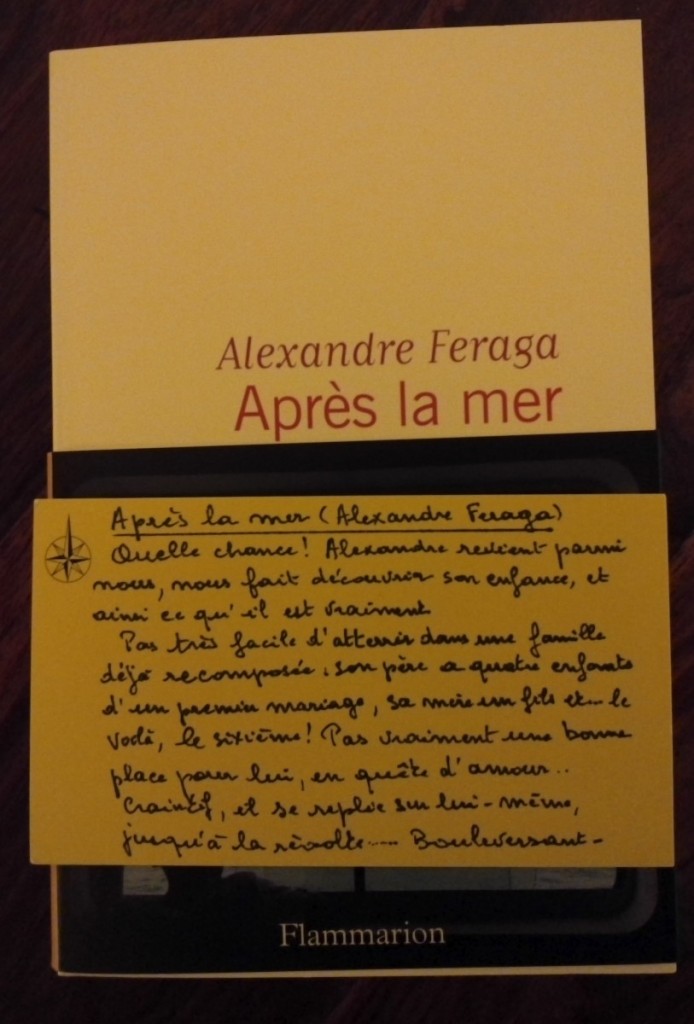 Alexandre Feraga
Après la mer
Après la mer (Alexandre Feraga)
Quelle chance! Alexandre revient parmi
nous, nous fait découvrir son enfance, et
ainsi ce qu'il est vraiment.
Pas très facile d'atterrir dans une famille
déjà recomposée : son père a quatre enfants
d'un premier mariage, sa mère un fils et... le
voilà, le sixième! Pas vraiment une bonne
place pour lui, en quête d'amour..
Craintif, il se replie sur lui-même,
jusqu'à la révolte..... Bouleversant-
Flammarion